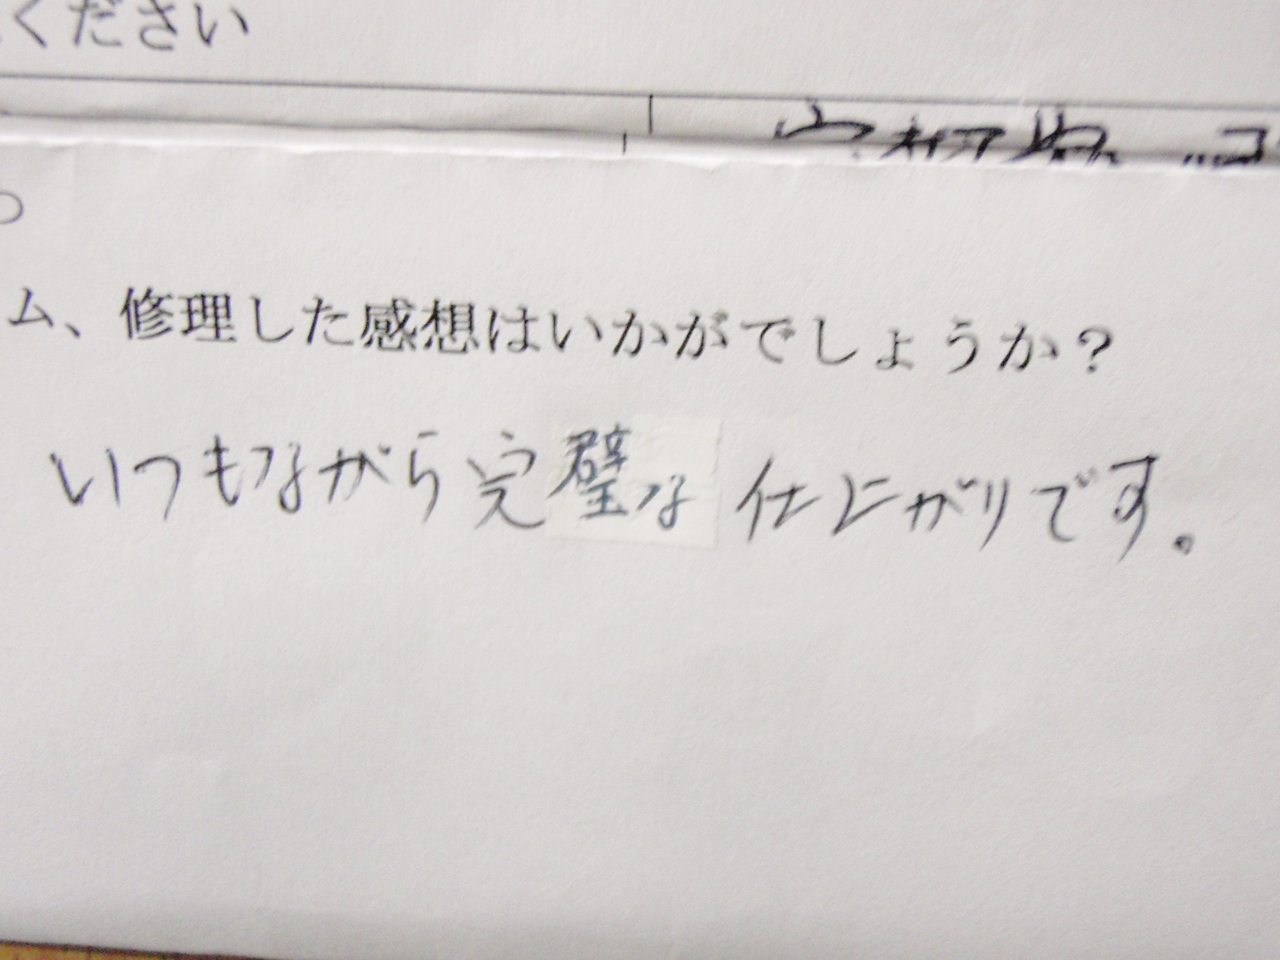 ください
ム、修理した感想はいかがでしょうか?
いつもながら完璧な仕上がりです。